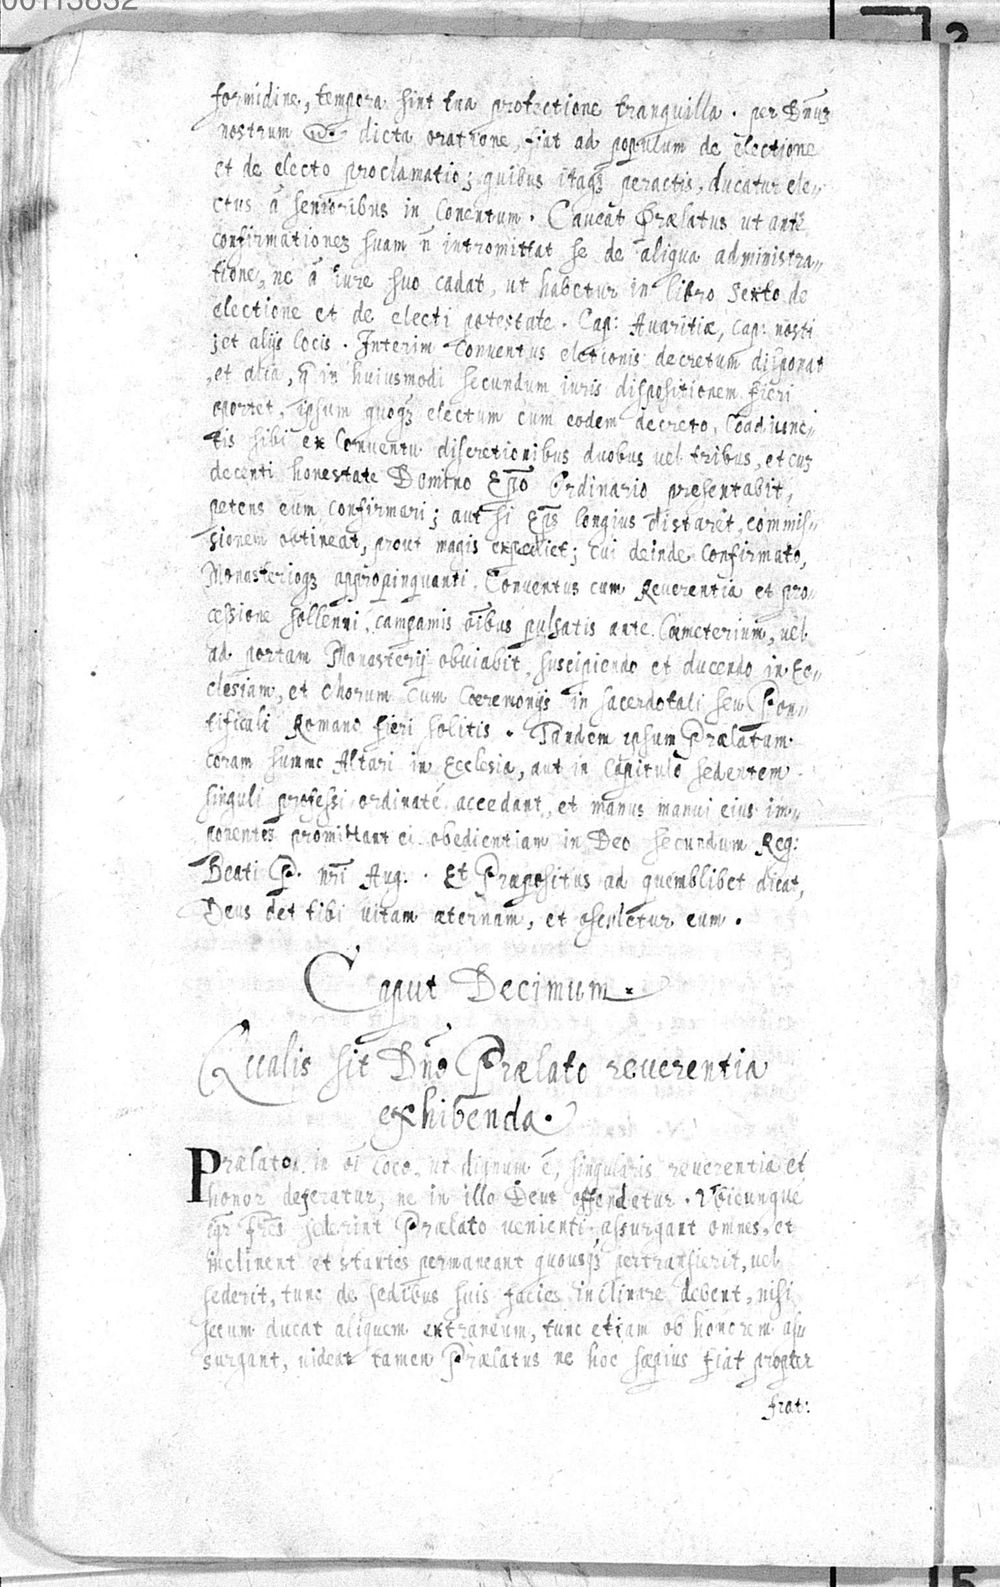 00113832
formidine, tempora sint tua protectione tranquilla. per Dñuȝ
nostrum &. dicta oratione, fiat ad populum de electione
et de electo proclamatio; quibus itaqȝ peractis, ducatur ele„
ctus á senioribus in Conentum. Caueat Prælatus ut ante
confirmationeȝ suam ñ intromittat se de aliqua administra„
tione, ne á iure suo cadat, ut habetur in libro Sexto de
electione et de electi potestate. Cap: Auaritiæ, cap: nosti
; et alijs locis. Interim Conuentus eletionis decretum disponat
, et alia, q̃ in huiusmodi secundum iuris dispositionem fieri
oportet, ipsum quoqȝ electum cum eodem decreto, Coadiunc„
tis sibi ex Conuentu discretionibus duobus uel tribus, et cuȝ
decenti honestate Domino Ep̃o Ordinario presentabit,
petens eum confirmari; aut si Ep̃s longius distaret, commis„
sionem obtineat, prout magis expediet; cui deinde Confirmato,
Monasterioqȝ appropinquanti, Conuentus cum Reuerentia et pro„
cessione sollenni, campamis oĩbus pulsatis ante Cœmeterium, uel
ad portam Monasterij obuiabit, suscipiendo et ducendo in Ec„
clesiam, et Chorum cum Cœremonijs in sacerdotali seu Pon„
tificali Romano fieri solitis. Tandem ipsum Prælatum
coram summo Altari in Ecclesia, aut in Capitulo sedentem
singuli professi ordinaté accedant, et manus manui eius im„
ponentes promittant ei obedientiam in Deo secundum Reg:
Beati P. nr̃i Aug:. Et Præpositus ad quemblibet dicat,
Deus det tibi uitam æternam, et osculetur eum.
Caput Decimum.
Qualis sit Dño Prælato reuerentia
exhibenda.
Prælato in oĩ loco, ut dignum ẽ, singularis reuerentia et
honor deferatur, ne in illo Deus offendetur. Vbicunque
igr̃ fr̃es sederint Prælato uenienti assurgant omnes, et
inclinent et stantes permaneant quousqȝ pertransierit, uel
sederit, tunc de sedibus suis facies inclinare debent, nisi
secum ducat aliquem extraneum, tunc etiam ob honorem asu
surgant, uideat tamen Prælatus ne hoc sæpius fiat propter
frat: